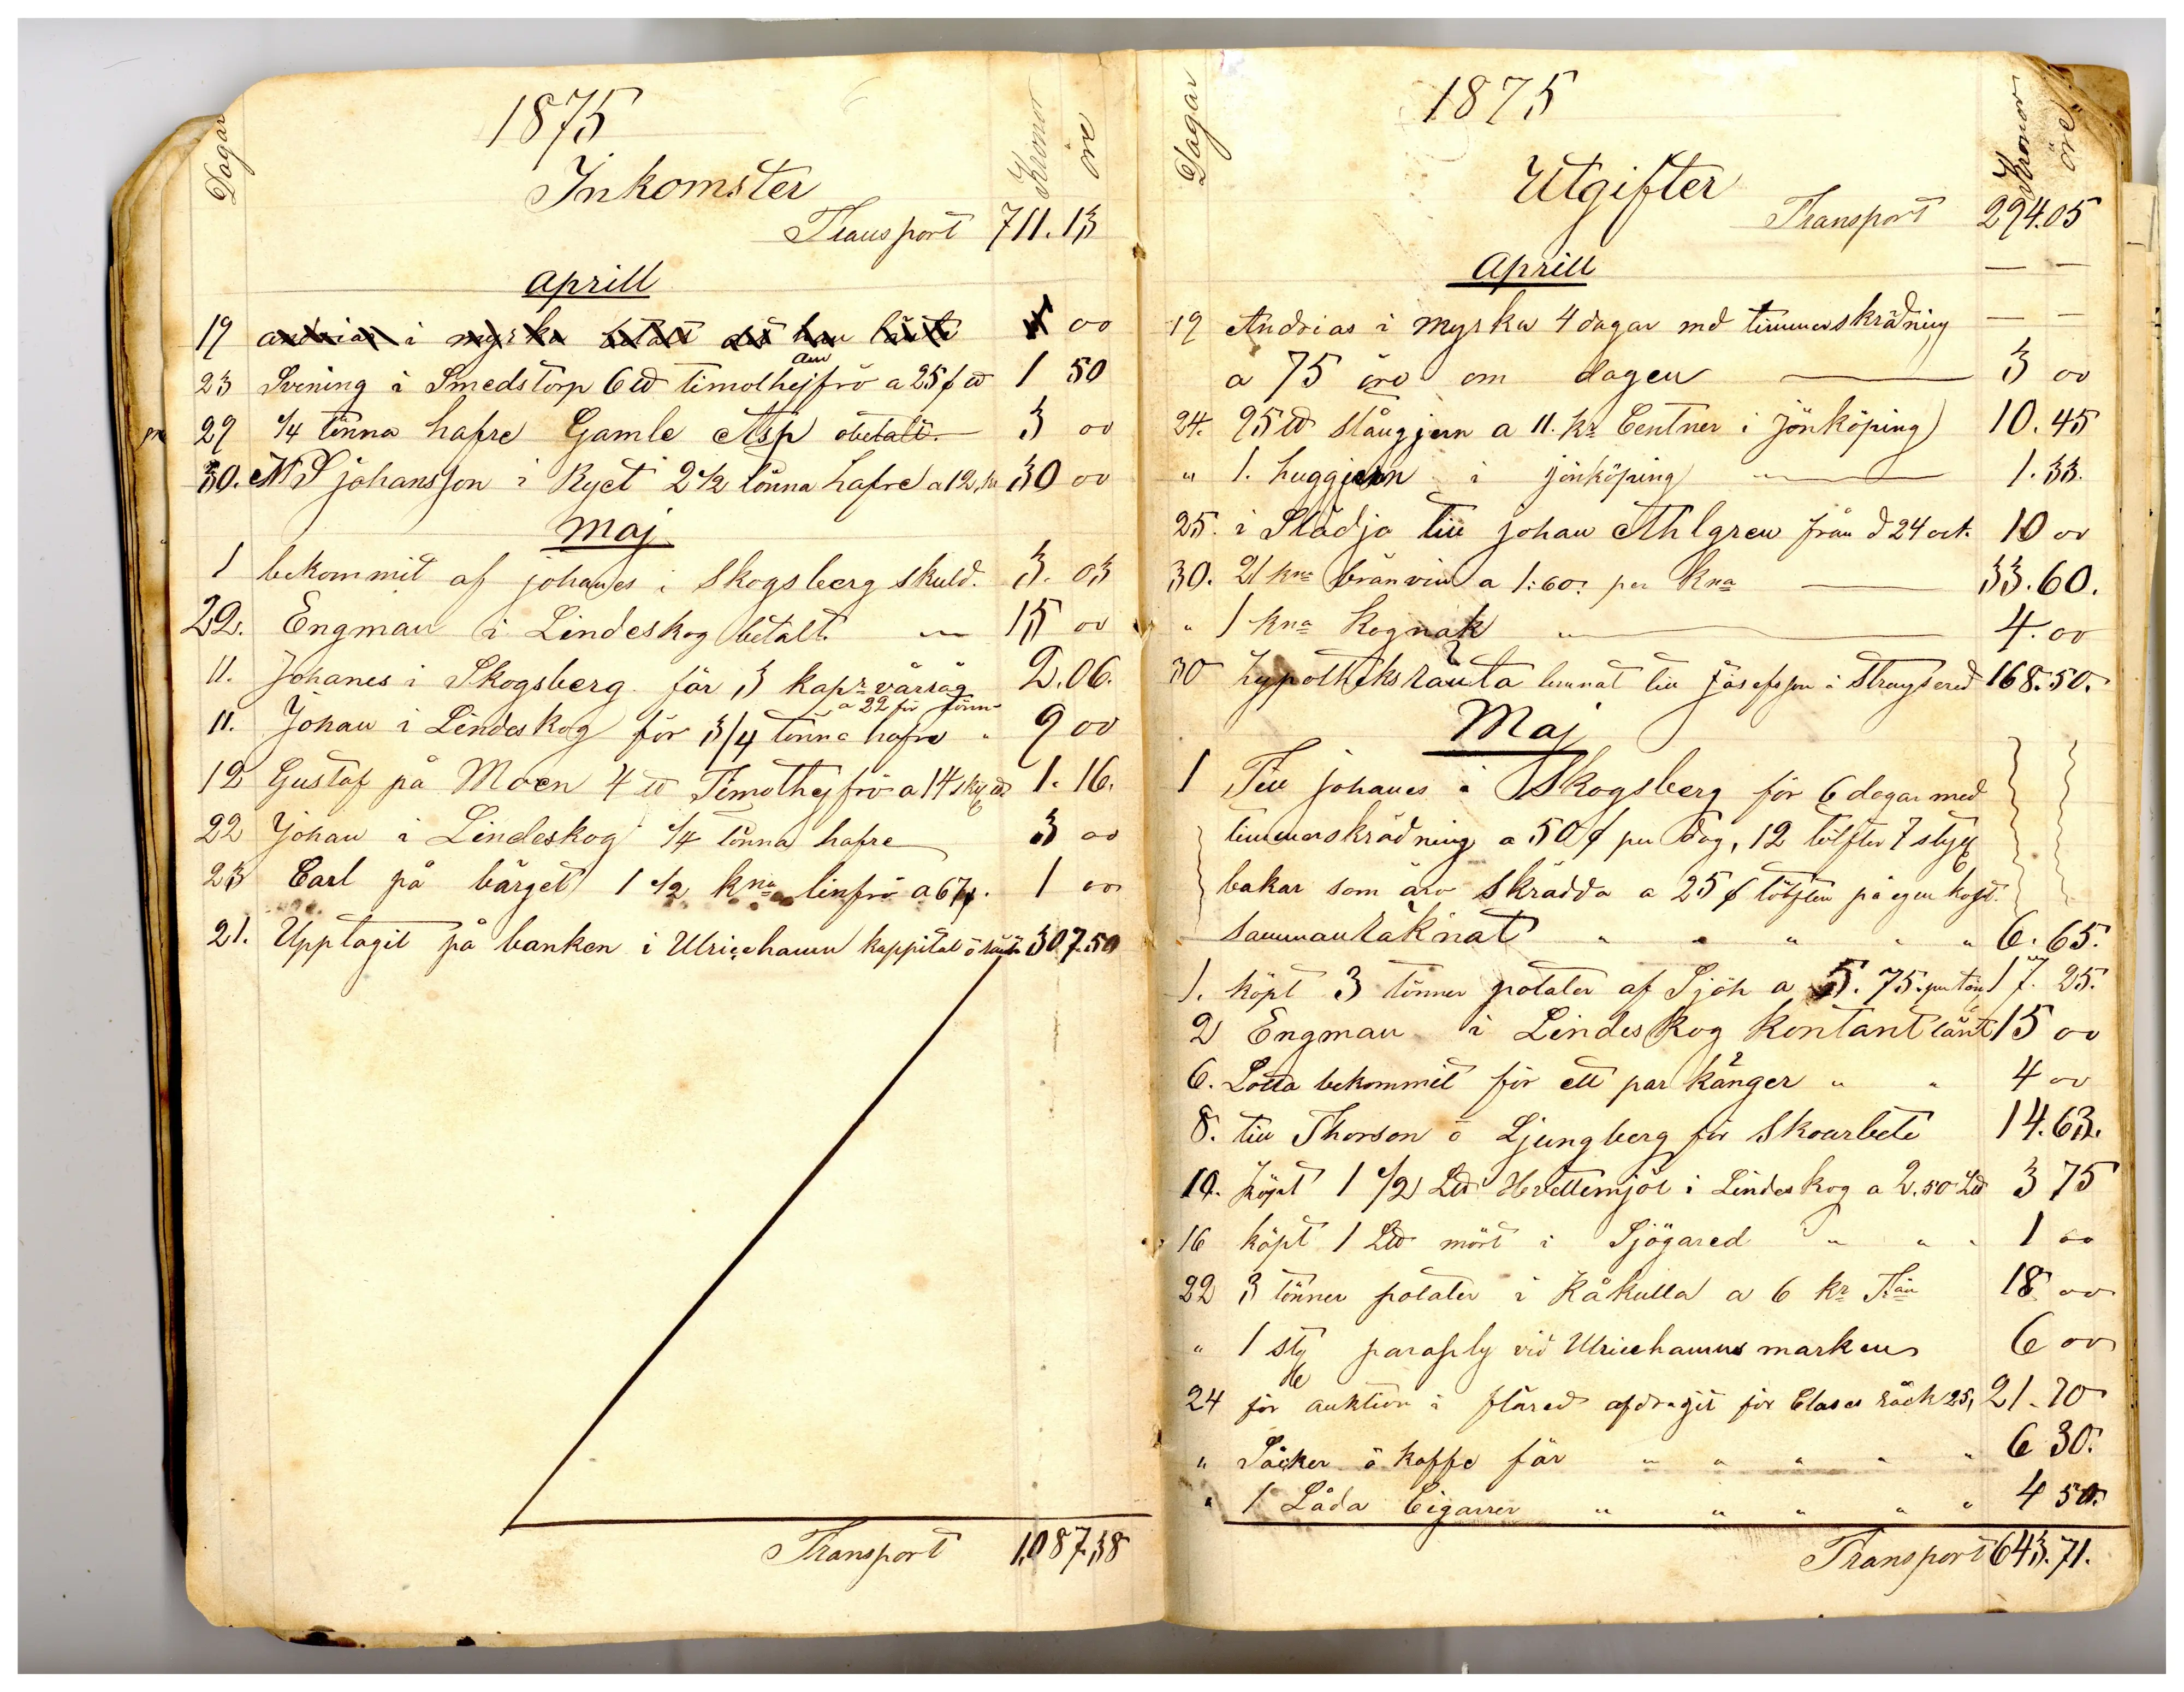 1875
Dagar
Inkomster
Kronor
öre
Transport 711.13
Aprill
19 andrias i myrka betalt det han lånte 00
23 Svening i Smedstorp 6 ℔ timothejfrö a 25 ℔ 1 50
29 1/4 tönna hafre Gamle Asp obetalt. 3 00
30. johansson i Ryet 2 1/2 tönna hafre a 12 kr 30 00
Maj
1 bekommit af johanes i Skogsberg skuld. 3. 03
22. Engman i Lindeskog betalt. " 15 00
11. Johanes i Skogsberg för 3 kapr vårråg 2.06.
a 22 för tönn
11. Johan i Lindeskog för 3/4 tönna hafre " 9 00
12 Gustaf på Moen 4 ℔ Timothejfrö a 14 sk ℔ 1. 16.
22 Johan i Lindeskog 1/4 tönna hafre 3 00
23 Carl på bärget 1 1/2 kna linfrö a 67. 1 00
21. Upptagit på banken i Ulricehamn kappital ö ränta 307.50
Transport 1,087,38
1875
Dagar
Utgifter
Kronor
öre
Transport 294.05
Aprill — —
19 Andrias i myrka 4 dagar md timmerskrädning — —
a 75 öre om dagen 3 00
24. 95 ℔ stångjern a 11. kr Centner i Jönköping) 10.45
" 1. huggjern i jönköping " 1.33.
25. i Städja till johan Ahlgren från d 24 oct. 10 00
30. 21 kna bränvin a 1:60: per kna 33.60.
" 1 kna kognak " 4.00
30 hypotheksränta lemnat till jösefsson i Strangsered 168.50.
Maj
1 Till johanes i Skogsberg för 6 dagar med
timmerskrädning a 50 per dag, 12 tölfter 7 styk
bakar som äro skrädda a 25 tölften på egen kost.
sammanräknat " " " " " 6.65.
1. köpt 3 tönner potater af Sjöh a 5.75. per tön 17.25.
2 Engman i Lindeskog kontant lånt 15 00
6. Lotta bekommit för ett par känger " " 4 00
8. till Thorson ö Ljungberg för Skoarbete 14.63.
10. köpt 1 1/2 L℔ Hvettemjöl i Lindeskog a 2.50 L℔ 3 75
16 köpt 1 L℔ mört i Sjögared " " " 1 00
22 3 tönner potater i Råkulla a 6 kr Tön 18 00
" 1 sty paraply vid Ulricehamns marken 6 00
24 för auktion i flåred afdragit för Clases räck 25, 21.70
" Såcker ö kaffe för " " " " " 6 30.
" 1 Låda Cigarrer " " " " " 4 50.
Transport 643.71.